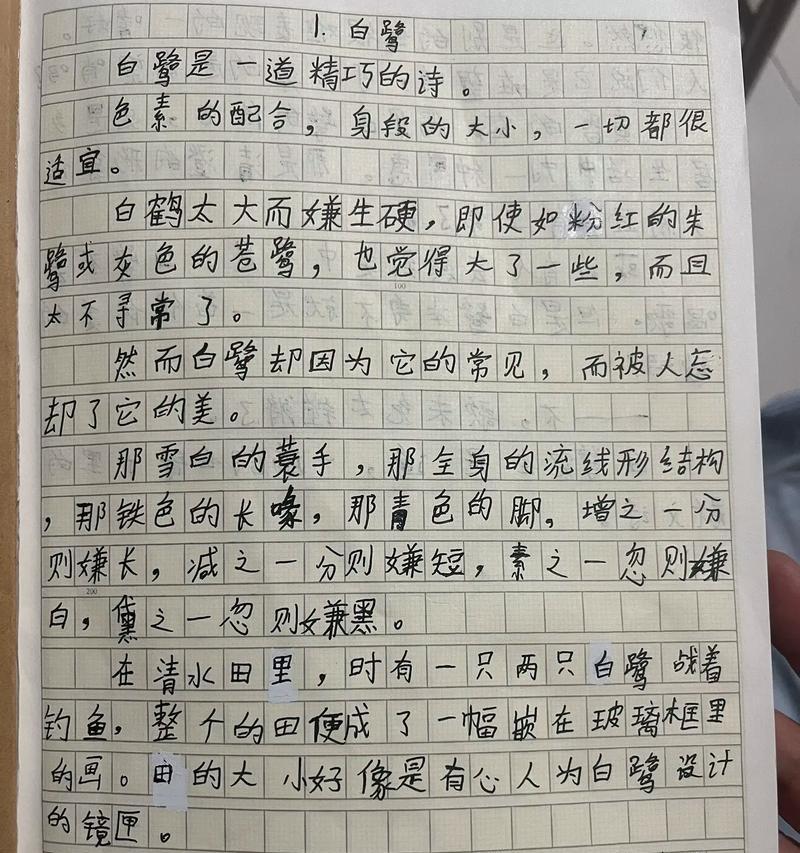 1. 白鹭
白鹭是一道精巧的诗。
色素的配合，身段的大小，一切都很
适宜。
白鹤太大而嫌生硬，即使如粉红的朱
鹭或灰色的苍鹭，也觉得大了一些，而且
100
太不寻常了。
然而白鹭却因为它的常见，而被人忘
却了它的美。
那雪白的蓑手，那全身的流线形结构
，那铁色的长喙，那青色的脚，增之一分
则嫌长，减之一分则嫌短，素之一忽则嫌
200
白，黛之一忽则嫌黑。
在清水田里，时有一只两只白鹭战着
钓鱼，整个的田便成了一幅嵌在玻璃框里
的画。田的大小好像是有心人为白鹭设计
的镜匣。